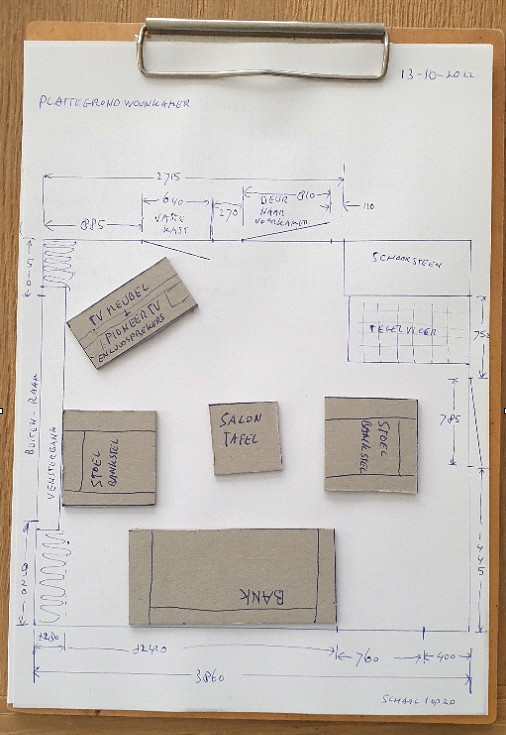 13-10-2022
PLATTEGROND WOONKAMER
2715
640
810
885
VASTE
KAST
270
DEUR
NAAR
VOORKAMER
110
SCHOORSTEEN
TV MEUBEL
+
PIONEER TV
EN LUIDSPREKERS
TEGELVLOER
750
785
BUITEN-RAAM
VENSTERBANK
STOEL
BANKSTEL
SALON
TAFEL
STOEL
BANKSTEL
BANK
±2420
760
400
3860
SCHAAL 1 OP 20